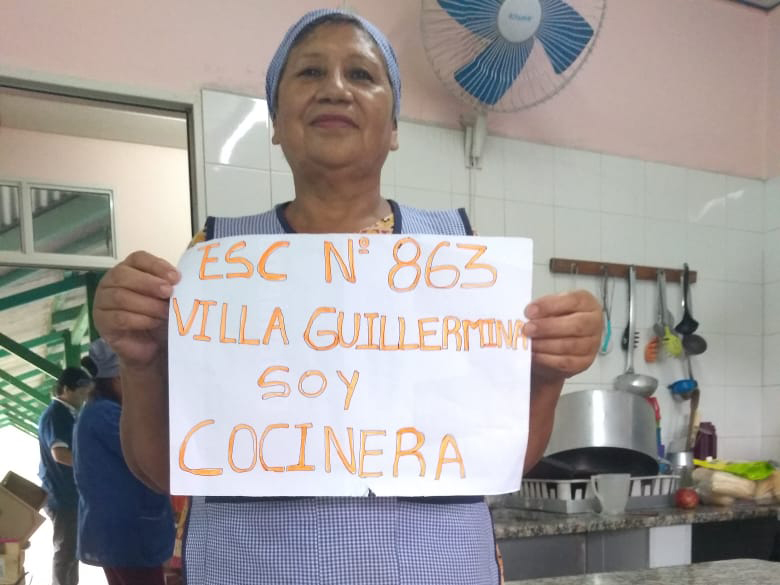 ESC Nº 863
VILLA GUILLERMINA
SOY
COCINERA